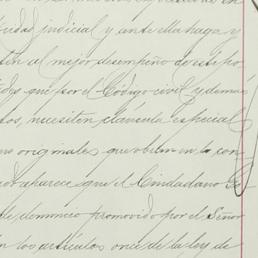 ridad judicial y ante ella haga y
al mejor desempeño de este po
que por el Código civil y demás
necesiten cláusula especial
originales que obran en la con
aparece que el Ciudadano
de dominio promovido por el Señor
los artículos once de la ley de